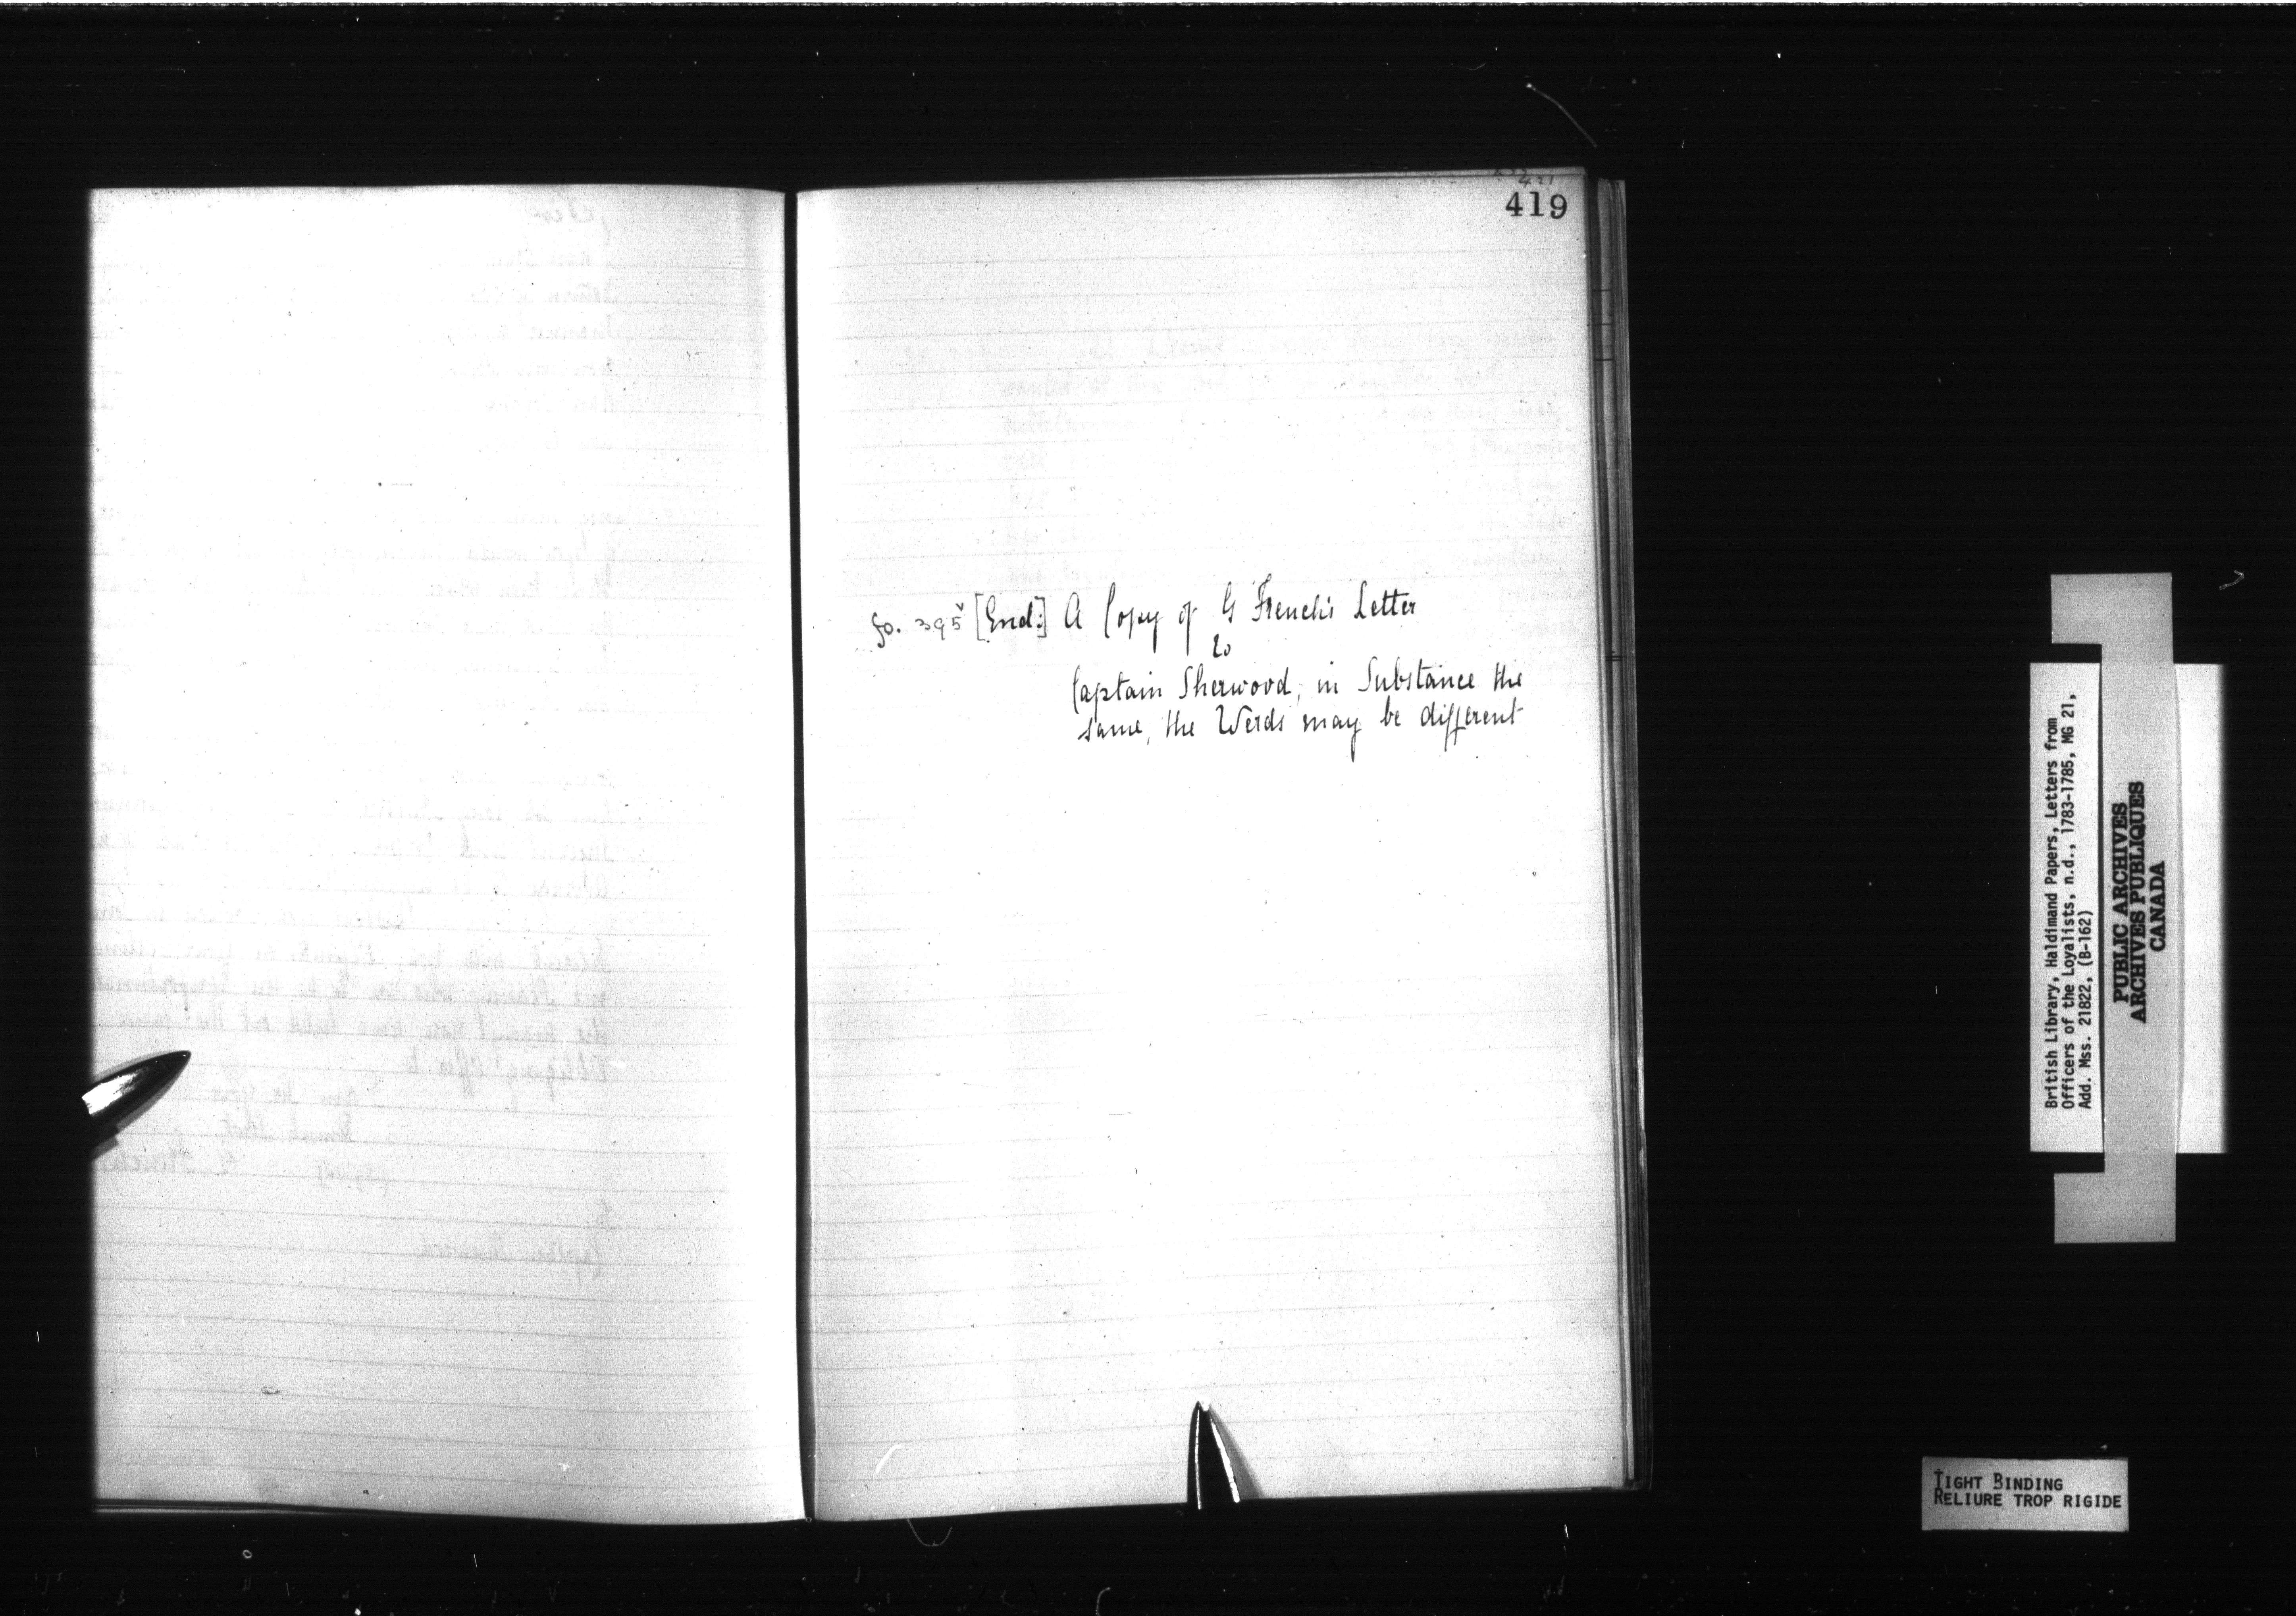 419
fo. 395v [End:] A Copy of G French's Letter
to
Captain Sherwood, in Substance the
same, the Words may be different
British Library, Haldimand Papers, Letters from
Officers of the Loyalists, n.d., 1783-1785, MG 21,
Add. Mss. 21822, (B-162)
PUBLIC ARCHIVES
ARCHIVES PUBLIQUES
CANADA
TIGHT BINDING
RELIURE TROP RIGIDE